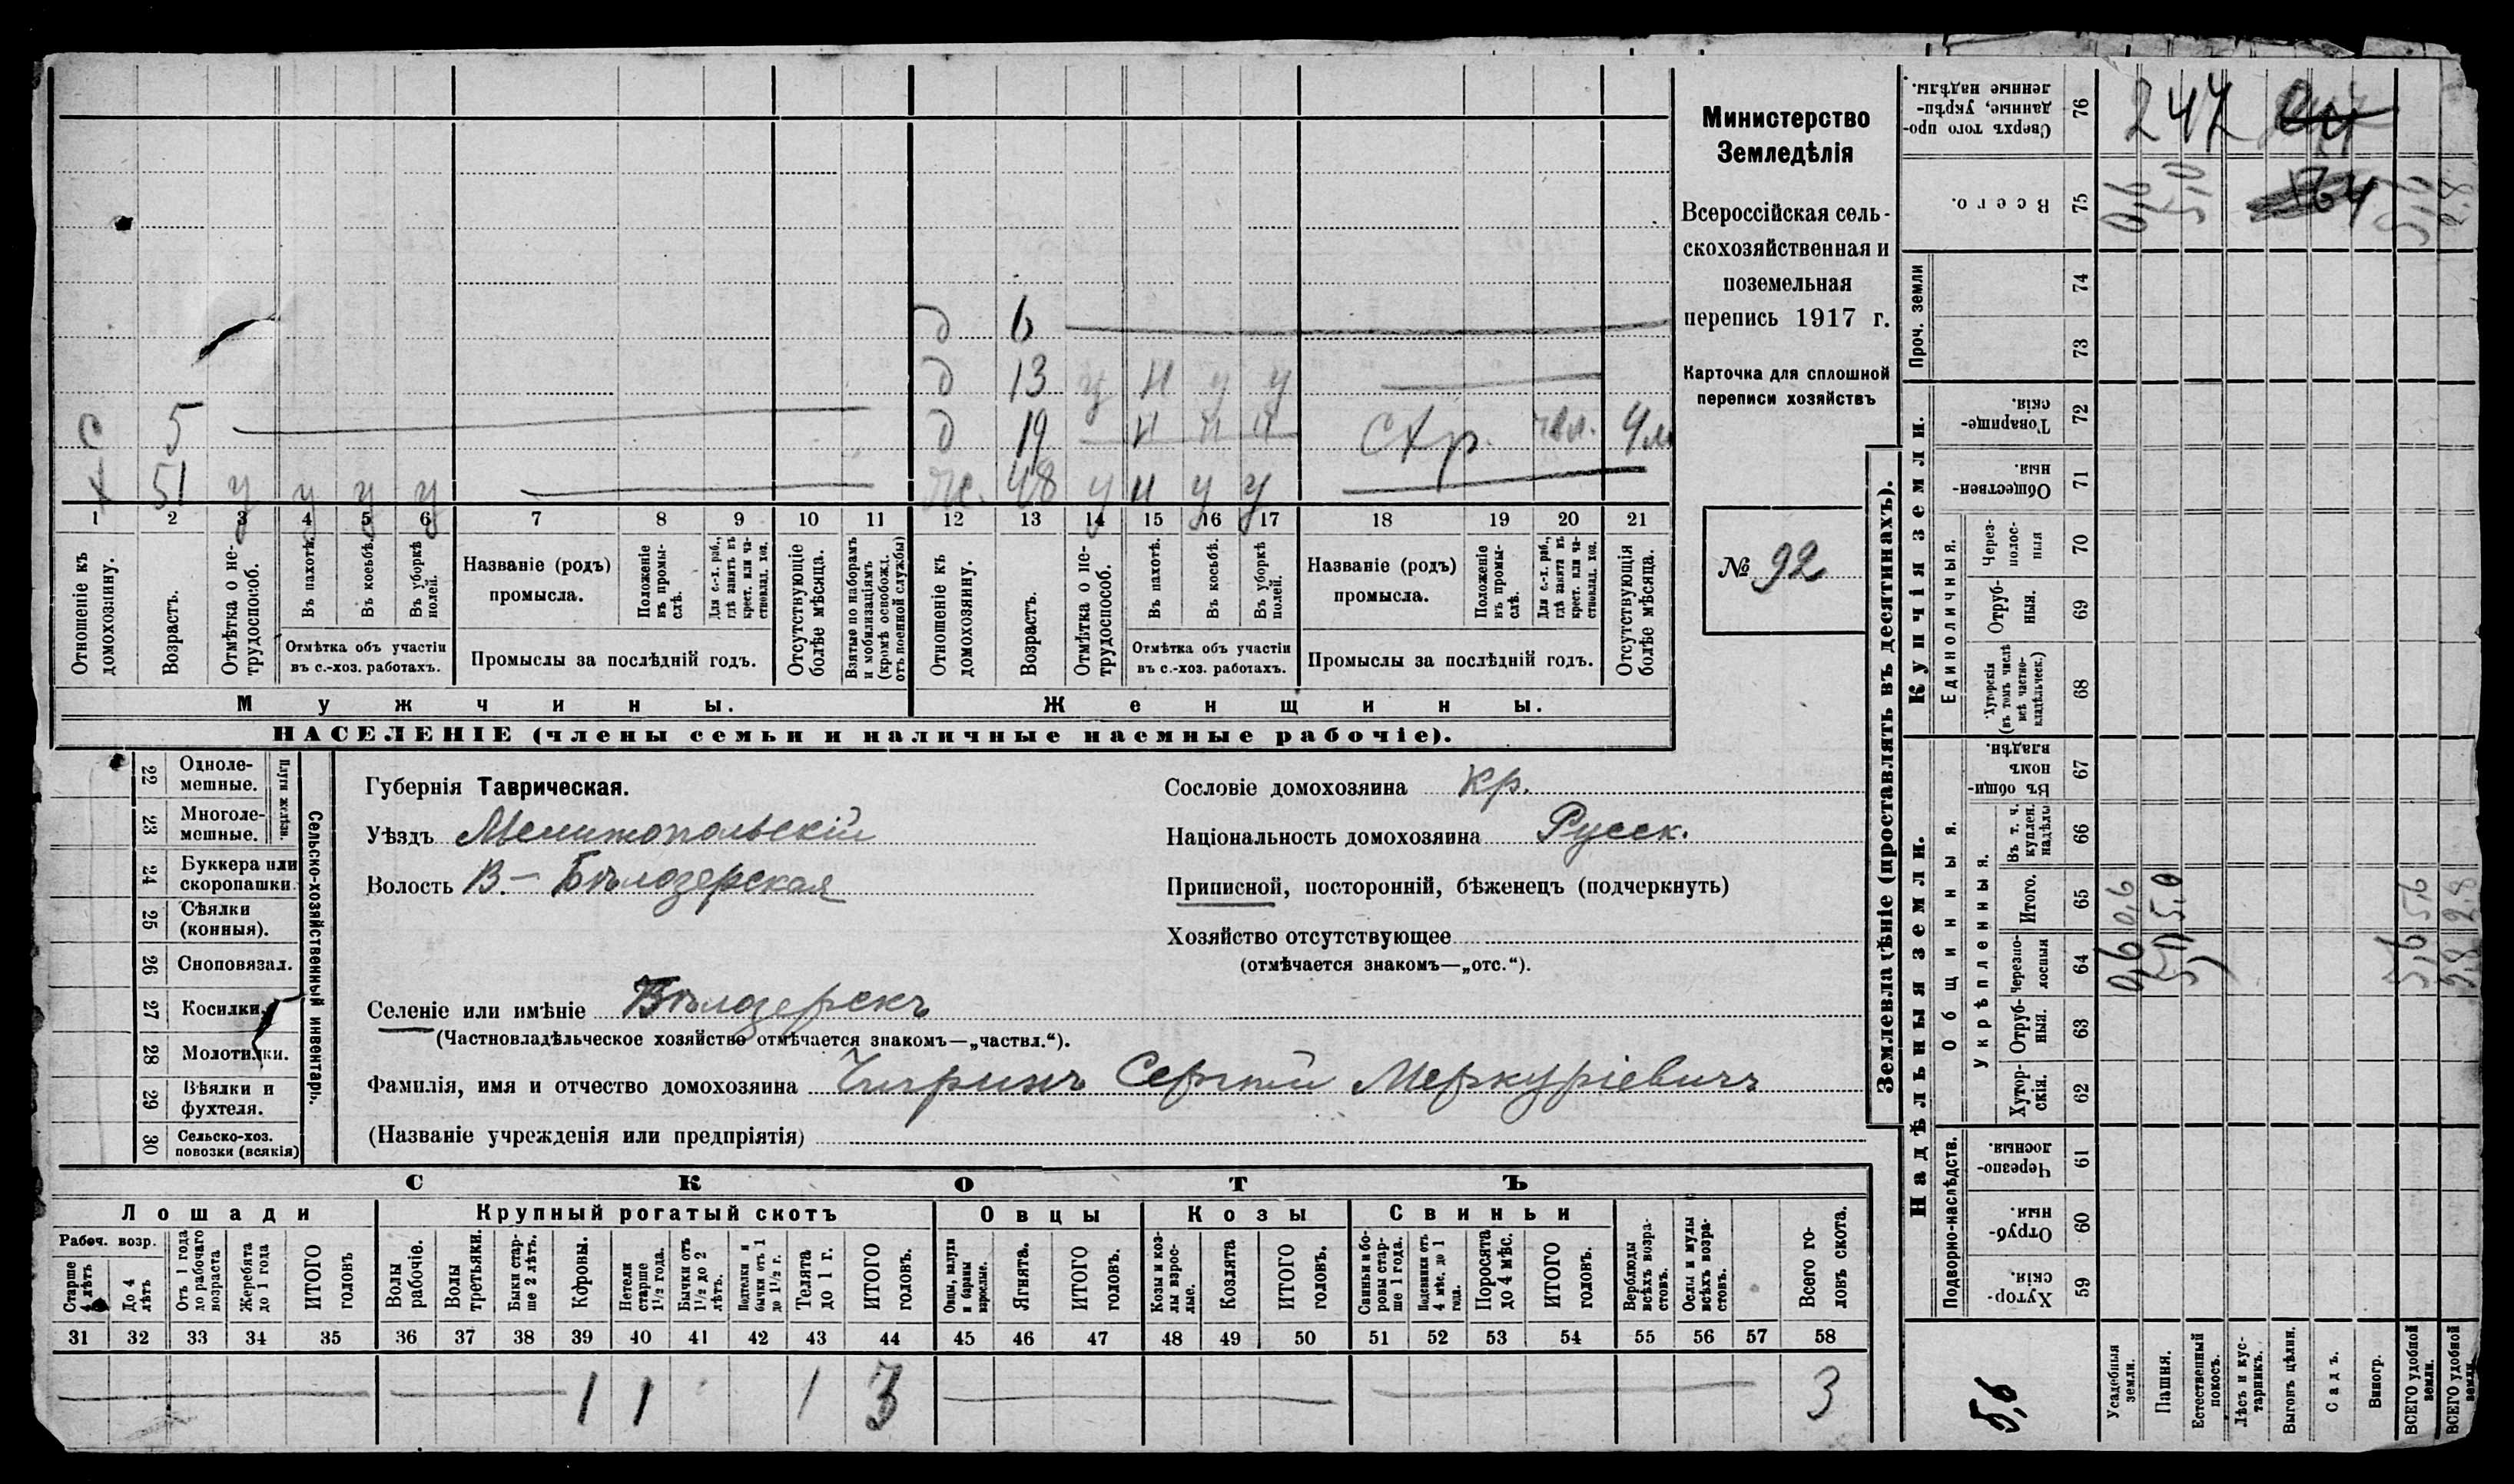 Министерство
Земледѣлія
Всероссійская сель-
скохозяйственная и
поземельная
перепись 1917 г.
Карточка для сплошной
переписи хозяйствъ
№ 92
д 6
д 13 у н у у
с 5
д 19 н н н
51 у у у у
ж. 48 у н у у
1 2 3 4 5 6 7 8 9 10 11 12 13 14 15 16 17 18 19 20 21
Отношеніе къ домохозяину.
Возрастъ.
Отмѣтка о не-трудоспособ.
Въ пахотѣ.
Въ косьбѣ.
Въ уборкѣ полей.
Отмѣтка объ участіи
въ с.-хоз. работахъ.
Названіе (родъ)
промысла.
Положеніе въ промы-слѣ.
Для с.-х. раб., гдѣ занятъ въ крест. или ча-стновлад. хоз.
Промыслы за послѣдній годъ.
Отсутствующіе болѣе мѣсяца.
Взятые по наборамъ и мобилизаціямъ (кромѣ освобожд. отъ военной службы)
Отношеніе къ домохозяину.
Возрастъ.
Отмѣтка о не-трудоспособ.
Въ пахотѣ.
Въ косьбѣ.
Въ уборкѣ полей.
Отмѣтка объ участіи
въ с.-хоз. работахъ.
Названіе (родъ)
промысла.
Положеніе въ промы-слѣ.
Для с.-х. раб., гдѣ занята въ крест. или ча-стновлад. хоз.
Промыслы за послѣдній годъ.
Отсутствующія болѣе мѣсяца.
Мужчины. Женщины.
НАСЕЛЕНІЕ (члены семьи и наличные наемные рабочіе).
Сельско-хозяйственный инвентарь.
Плуги желѣзн.
22 Одноле-мешные.
23 Многоле-мешные.
24 Буккера или скоропашки.
25 Сѣялки (конныя).
26 Сноповязал.
27 Косилки.
28 Молотилки.
29 Вѣялки и фухтеля.
30 Сельско-хоз. повозки (всякія)
Губернія Таврическая.
Уѣздъ Мелитопольскій
Волость В.- Бѣлозерская
Сословіе домохозяина кр.
Національность домохозяина Русск.
Приписной, посторонній, бѣженецъ (подчеркнуть)
Хозяйство отсутствующее
(отмѣчается знакомъ—„отс.“).
Селеніе или имѣніе Бѣлозерскъ
(Частновладѣльческое хозяйство отмѣчается знакомъ—„частвл.“).
Фамилія, имя и отчество домохозяина Чигринъ Сергѣй Меркуріевичъ
(Названіе учрежденія или предпріятія)
СКОТЪ
Лошади Крупный рогатый скотъ Овцы Козы Свиньи
Рабоч. возр.
Старше 4 лѣтъ
До 4 лѣтъ
Отъ 1 года до рабочаго возраста
Жеребята до 1 года
ИТОГО головъ
Волы рабочіе.
Волы третьяки.
Быки стар-ше 2 лѣтъ.
Коровы.
Нетели старше 1½ года.
Бычки отъ 1½ до 2 лѣтъ.
Подтелки и бычки отъ 1 до 1½ г.
Телята до 1 г.
ИТОГО головъ.
Овцы, валухи и бараны взрослые.
Ягнята.
ИТОГО головъ.
Козы и коз-лы взрос-лые.
Козлята
ИТОГО головъ.
Свиньи и бо-ровы стар-ше 1 года.
Подсвинки отъ 4 мѣс. до 1 года.
Поросята до 4 мѣс.
ИТОГО головъ.
Верблюды всѣхъ возра-стовъ.
Ослы и мулы всѣхъ возра-стовъ.
Всего го-ловъ скота.
31 32 33 34 35 36 37 38 39 40 41 42 43 44 45 46 47 48 49 50 51 52 53 54 55 56 57 58
1 1 1 3 3
Землевладѣніе (проставлять въ десятинахъ).
Надѣльныя земли.
Купчія земли.
Проч. земли
Подворно-наслѣдств.
Общинныя.
Укрѣпленныя.
Единоличныя.
76 Сверхъ того про-данные, укрѣп-ленные надѣлы. 247
75 Всего. 0,6 5,0 5,6 2,8
74
73
72 Товарище-скія.
71 Обществен-ныя.
70 Через-полос-ныя
69 Отруб-ныя.
68 Хуторскія (въ томъ числѣ всѣ частно-владѣльческ.)
67 Въ общи-номъ владѣн.
66 Въ т. ч. куплен. надѣлы
65 Итого. 0,6 5,0 5,6 2,8
64 Черезпо-лосныя 0,6 5,0 5,6 2,8
63 Отруб-ныя.
62 Хутор-скія.
61 Черезпо-лосныя.
60 Отруб-ныя.
59 Хутор-скія.
5,6
Усадебныя земли.
Пашня.
Естественный покосъ.
Лѣсъ и кус-тарникъ.
Выгонъ цѣлин.
Садъ.
Виногр.
ВСЕГО удобной земли.
ВСЕГО удобной земли.